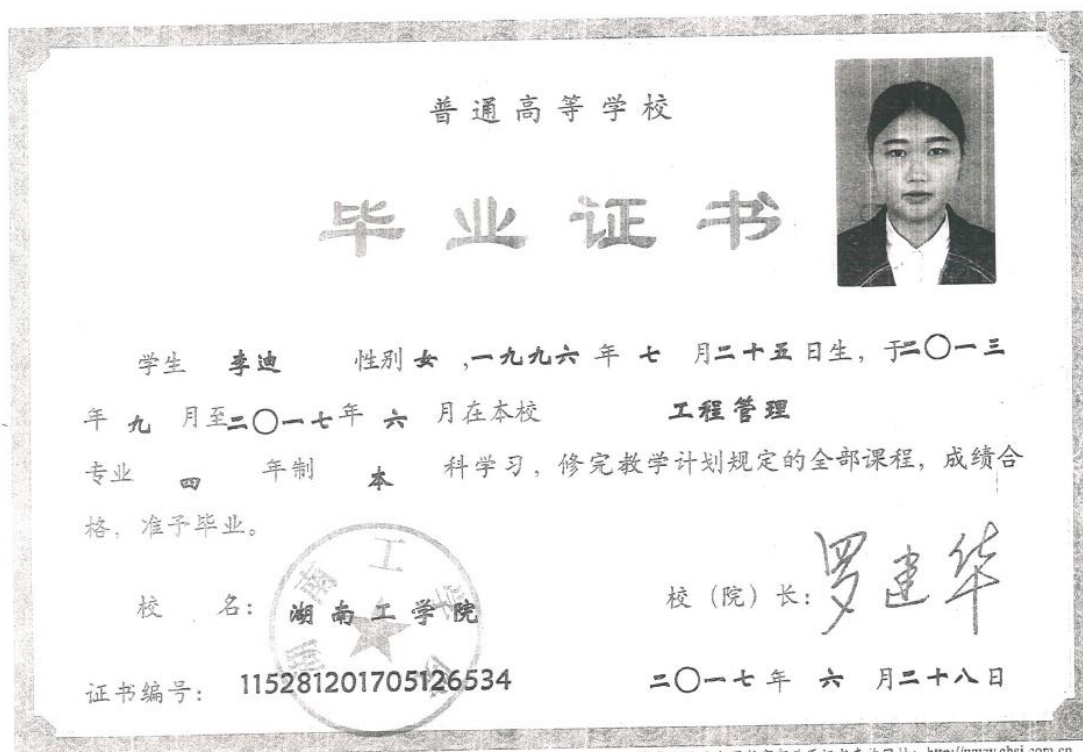 普通高等学校
毕业证书
学生 李迪 性别 女 ,一九九六 年 七 月二十五日生，于二〇一三
年 九 月至二〇一七年 六 月在本校 工程管理
专业 四 年制 本 科学习，修完教学计划规定的全部课程，成绩合
格，准予毕业。
校 名： 湖南工学院
校（院）长：罗建华
证书编号： 115281201705126534
二〇一七 年 六 月二十八日
http://www.chsi.com.cn